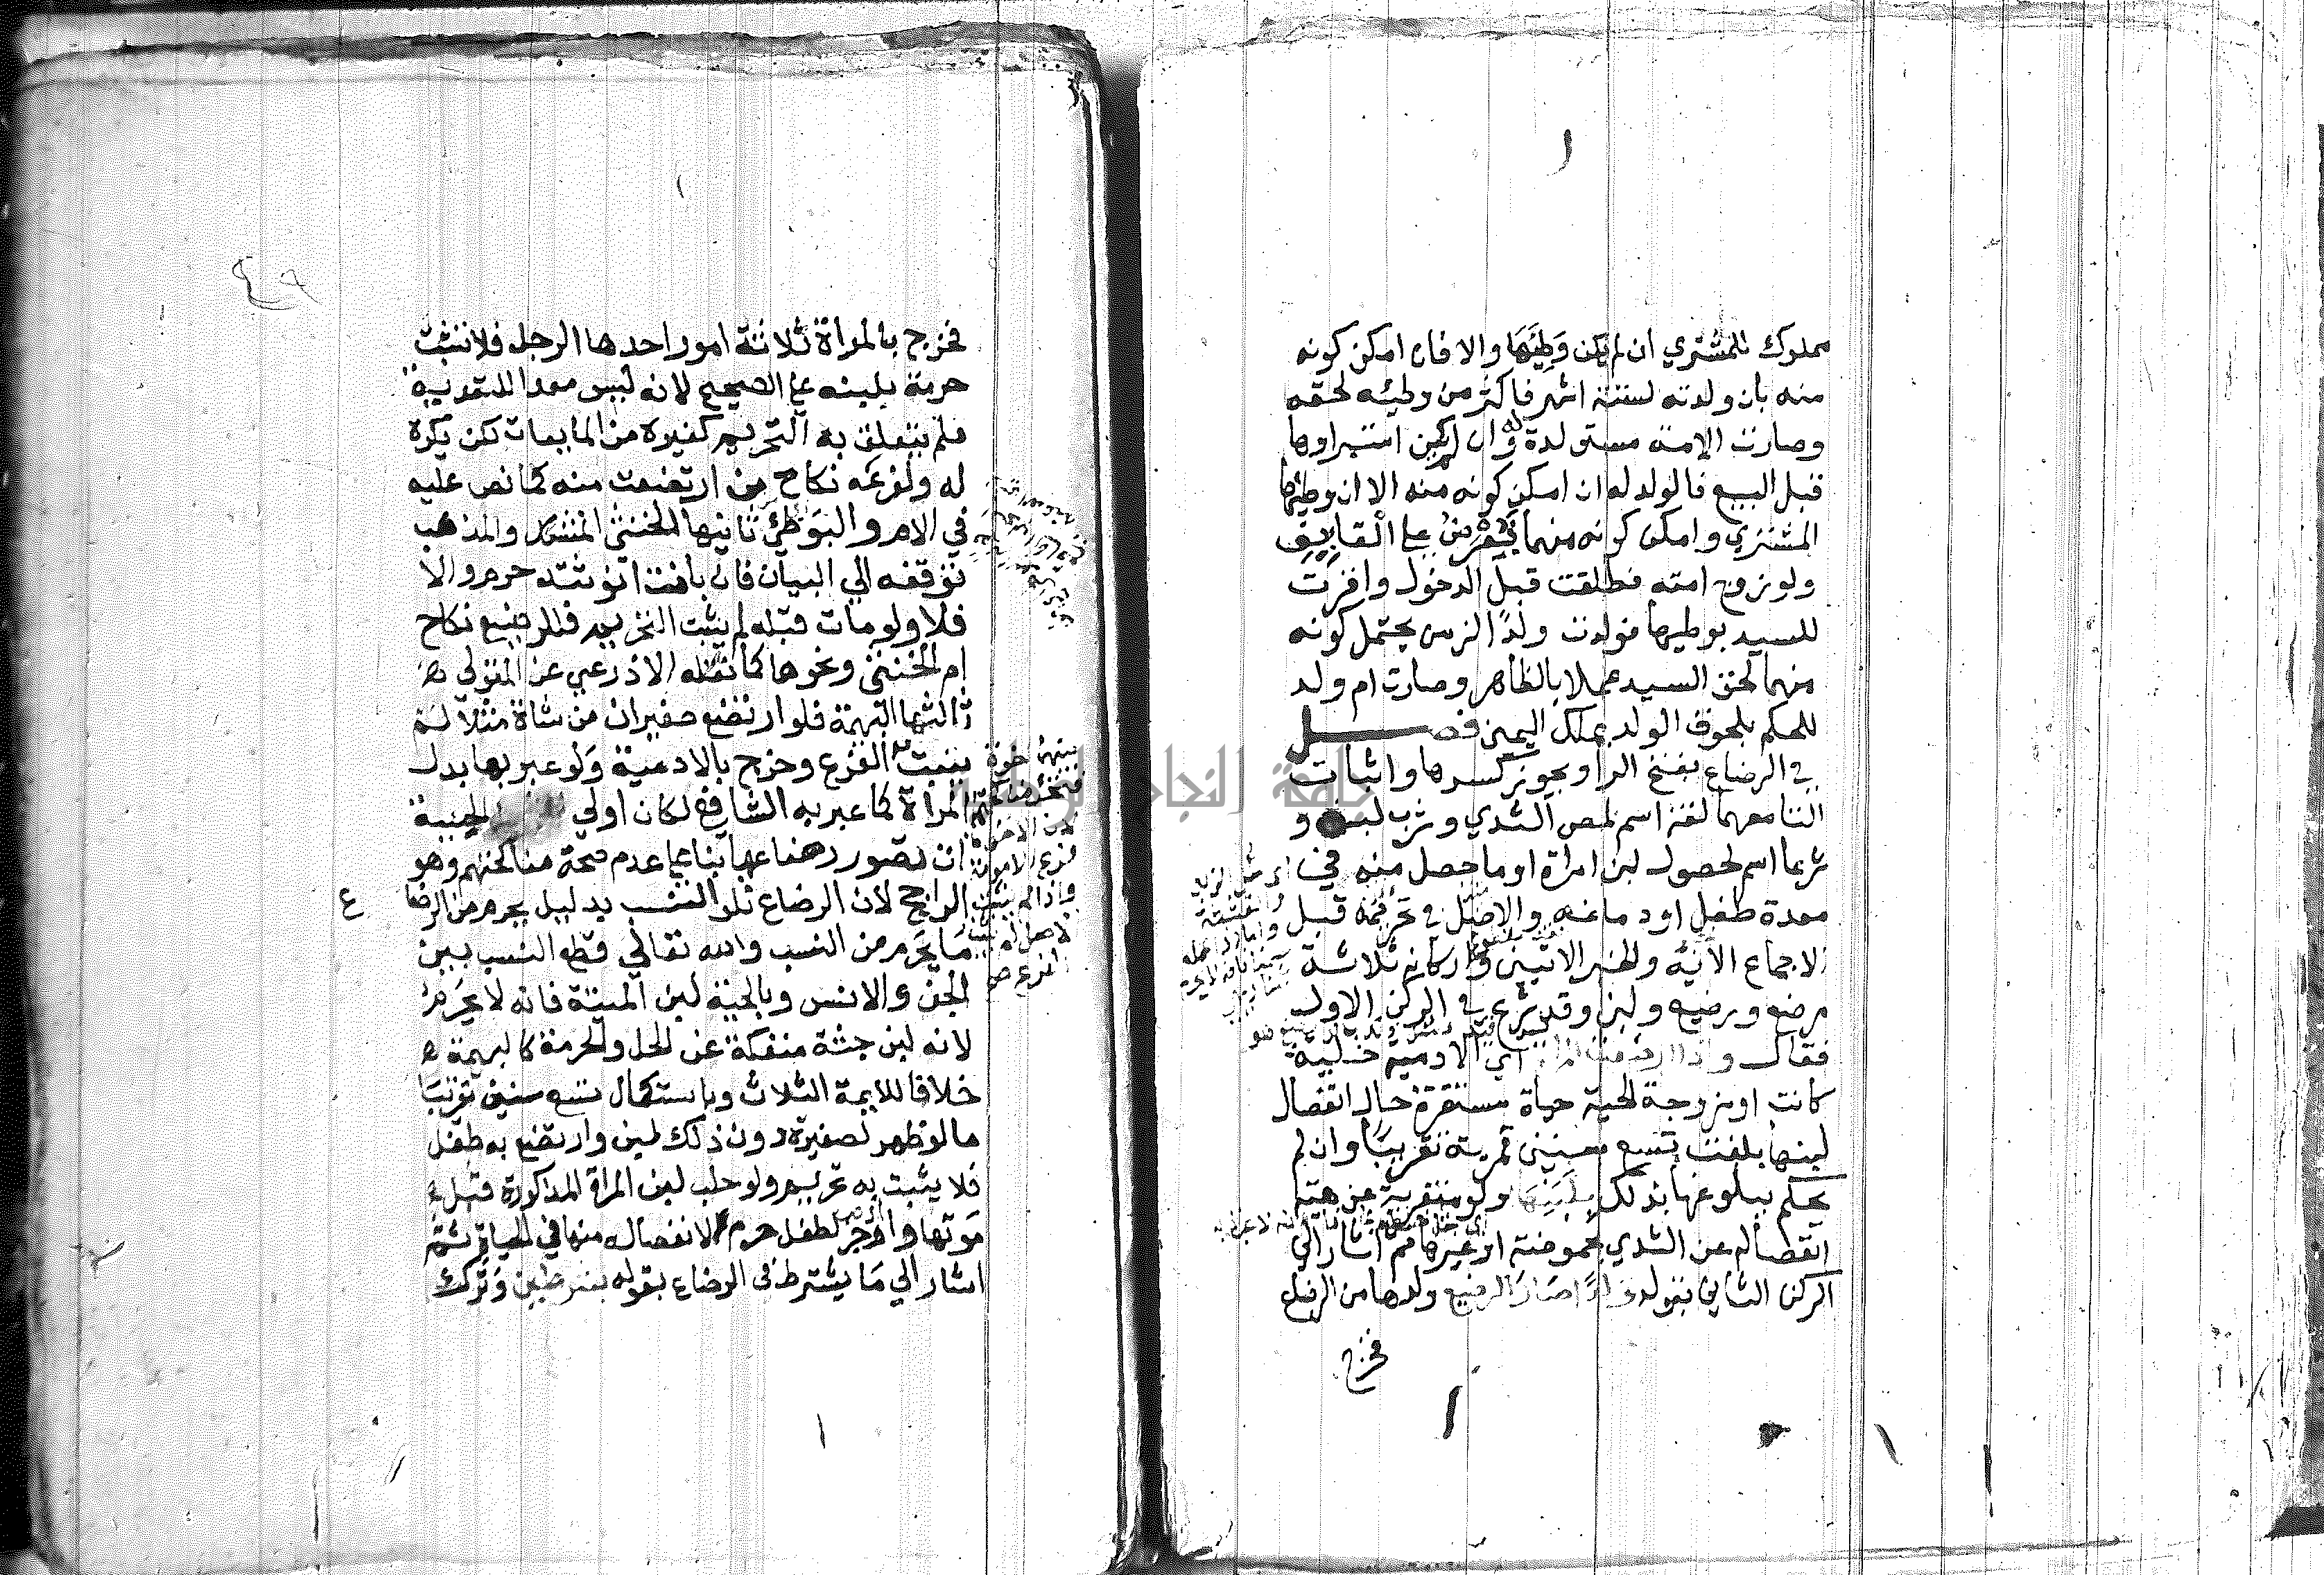 مملوك للمشتري ان لم يكن وطئها والا فان امكن كونه
منه بان ولدته لستة اشهر فاكثر من وطئه لحقه
وصارت الامة مستولدة له وان لم يكن استبراوها
قبل البيع فالولد له ان امكن كونه منه الا ان وطئها
المشتري وامكن كونه منهما فيعرض على القايف
ولو زوج امته فطلقت قبل الدخول واقرت
للسيد بوطيها فولدت ولدا لزمن يحتمل كونه
منهما لحق السيد عملا بالظاهر وصارت ام ولد
للحكم بلحوق الولد بملك اليمين فصل
في الرضاع بفتح الرا ويجوز كسرها واثبات
التا معهما لغة اسم لمص الثدي وشرب لبنه و
شرعا اسم لحصول لبن امراة او ما حصل منه في
معدة طفل او دماغه والاصل في تحريمه قبل
الاجماع الاية والخبر الاتيين واركانه ثلاثة
مرضع ورضيع ولبن وقد شرع في الركن الاول
فقال واذا ارضعت اي الادمية خلية
كانت او مزوجة الحية حياة مستقرة حال انفصال
لبنها بلغت تسع سنين قمرية تقريبا وان لم
يحكم ببلوغها بذلك بلبنها ولو متغيرا عن هيئة
انفصاله عن الثدي بحموضة او غيرها ثم اشار الي
الركن الثاني بقوله ولدا صار الرضيع ولدها من الرضاع
فخرج
فخرج بالمراة ثلاثة امور احدها الرجل فلا تثبت
حرمة بلبنه على الصحيح لانه ليس معدا للتغذية
فلم يتعلق به التحريم كغيره من المايعات لكن يكره
له ولفرعه نكاح من ارتضعت منه كما نص عليه
في الام والبويطي ثانيها الخنثي المشكل والمذهب
توقفه الي البيان فان بانت انوثته حرم والا
فلا ولو مات قبله لم يثبت التحريم فللرضيع نكاح
ام الخنثي ونحوها كما نقله الاذرعي عن المتولي
ثالثها البهيمة فلو ارتضع صغيران من شاة مثلا لم
يثبت الفرع وخرج بالادمية ولو عبر بها بدل
المراة كما عبر به الشافعي لكان اولي الجنية
ان تصور رضاعها بنا على عدم صحة مناكحتهم وهو
الراجح لان الرضاع تلو النسب بدليل يحرم من الرضاع
ما يحرم من النسب والله تعالي قطع النسب بين
الجن والانس وبالحية لبن الميتة فانه لا يحرم
لانه لبن جثة منفكة عن الحل والحرمة كالبهيمة
خلافا للايمة الثلاث وباستكمال تسع سنين تقريبا
ما لو ظهر لصغيرة دون ذلك لبن وارتضع به طفل
فلا يثبت به تحريم ولو حلب لبن المراة المذكورة قبل
موتها واوجر لطفل حرم لانفصاله منها في الحياة ثم
اشار الي ما يشترط في الرضاع بقوله بشرطين وترك
بينهما اخوة
لان الاخوة
فرع الامومة
واذا لم يثبت
الاصل لم يثبت
الفرع
جامعة النجاح